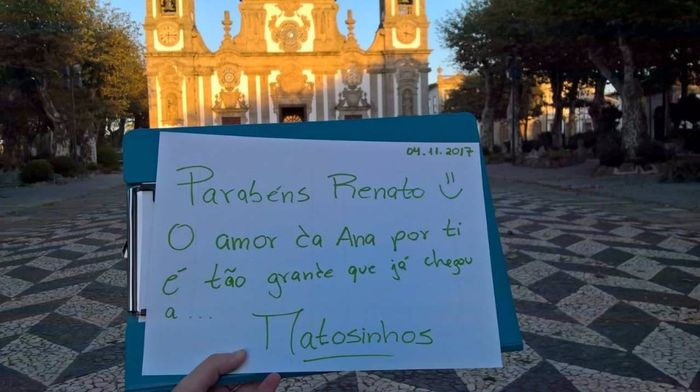 04.11.2017
Parabéns Renato =)
O amor da Ana por ti
é tão grande que já chegou
a ...
Matosinhos